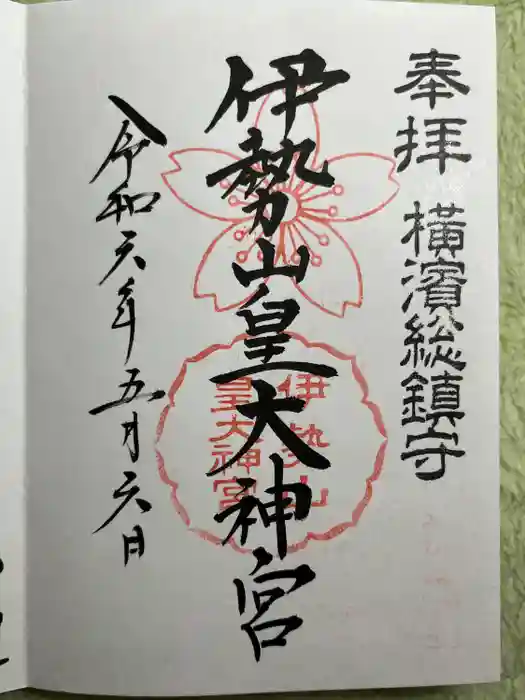 奉拝 横濱総鎮守
伊勢山皇大神宮
伊勢山
皇大神宮
令和六年五月六日